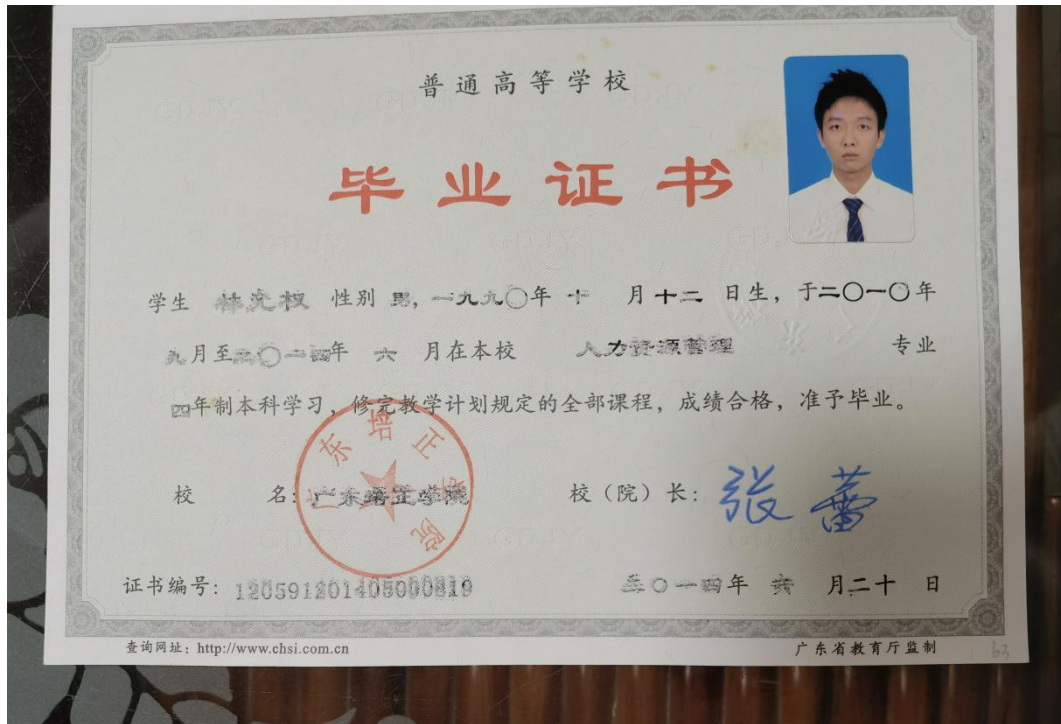 普通高等学校
毕业证书
学生 林允权 性别 男，一九九〇年 十 月十二 日生，于二〇一〇年
九月至二〇一四年 六 月在本校 人力资源管理 专业
四年制本科学习，修完教学计划规定的全部课程，成绩合格，准予毕业。
校 名：广东培正学院 校（院）长：张蕾
广东培正学院
证书编号：120591201405000819 二〇一四年 六 月二十 日
查询网址：http://www.chsi.com.cn 广东省教育厅监制
63